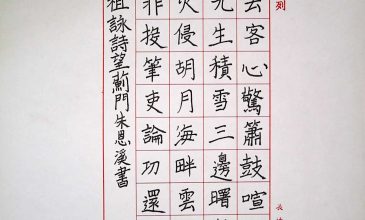 刻
去客心驚簫鼓喧
光生積雪三邊曙
火侵胡月海畔雲
非投筆吏論功還
祖詠詩望薊門 朱恩溪書